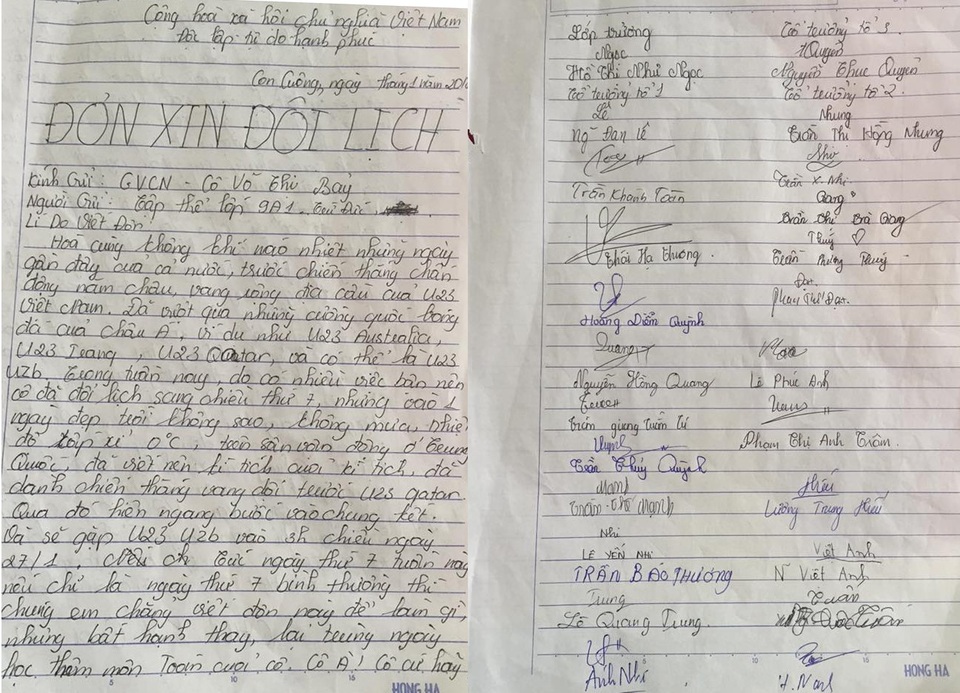 Cộng hoà xã hội chủ nghĩa Việt Nam
Độc lập tự do hạnh phúc
Con Cuông, ngày tháng 1 năm 2018
ĐƠN XIN ĐỔI LỊCH
Kính Gửi: GVCN - Cô Võ Thị Bảy
Người Gửi: Tập thể lớp 9A1
Lí Do Viết Đơn:
Hoà cùng không khí náo nhiệt những ngày
gần đây của cả nước, trước chiến thắng chấn
động năm châu, vang vọng địa cầu của U23
Việt Nam. Đã vượt qua những cường quốc bóng
đá của châu Á, ví dụ như U23 Australia,
U23 Irang, U23 Qatar, và có thể là U23
Uzb. Trong tuần này, do có nhiều việc bận nên
cô đã đổi lịch sang chiều thứ 7, nhưng vào 1
ngày đẹp trời không sao, không mưa, nhiệt
độ xấp xỉ 0°c, trên sân vận động ở Trung
Quốc, đã viết nên kì tích của kì tích, đã
danh chiến thắng vang dội trước U23 qatar
Qua đó hiên ngang bước vào chung kết.
Và sẽ gặp U23 Uzb vào 3h chiều ngày
27/1. Tức ngày thứ 7 tuần này
nếu chỉ là ngày thứ 7 bình thường thì
chúng em chẳng viết đơn này để làm gì,
nhưng bất hạnh thay, lại trùng ngày
học thêm môn Toán của cô. Cô À! Cô cứ hãy
5 10 15
HONG HA
Lớp trưởng Tổ trưởng tổ 3
Ngọc Quyên
Hồ Thị Như Ngọc Nguyễn Thục Quyên
Tổ trưởng tổ 1 Tổ trưởng tổ 2
Lê Nhung
Ngô Đan Lê Trần Thị Hồng Nhung
Như
Trần X. Nhi
Trần Khánh Toàn Giang
Trần Thị Trà Giang
Thuý
Thái Hạ Thương Trần Phương Thuý
Đạt
Phan Thế Đạt
Hoàng Diễm Quỳnh
Quang
Nguyễn Hồng Quang Lê Phúc Anh
Trần giang Tuấn Tú
Quỳnh Phạm Thị Anh Trâm
Trần Thuý Quỳnh
Mạnh Hiếu
Lương Trung Hiếu
Nhi
LÊ YẾN NHI Việt Anh
TRẦN BẢO THƯƠNG N Việt Anh
Trung Tuấn
Lê Quang Trung
Anh Nhi H. Nam
5 10 15
HONG HA